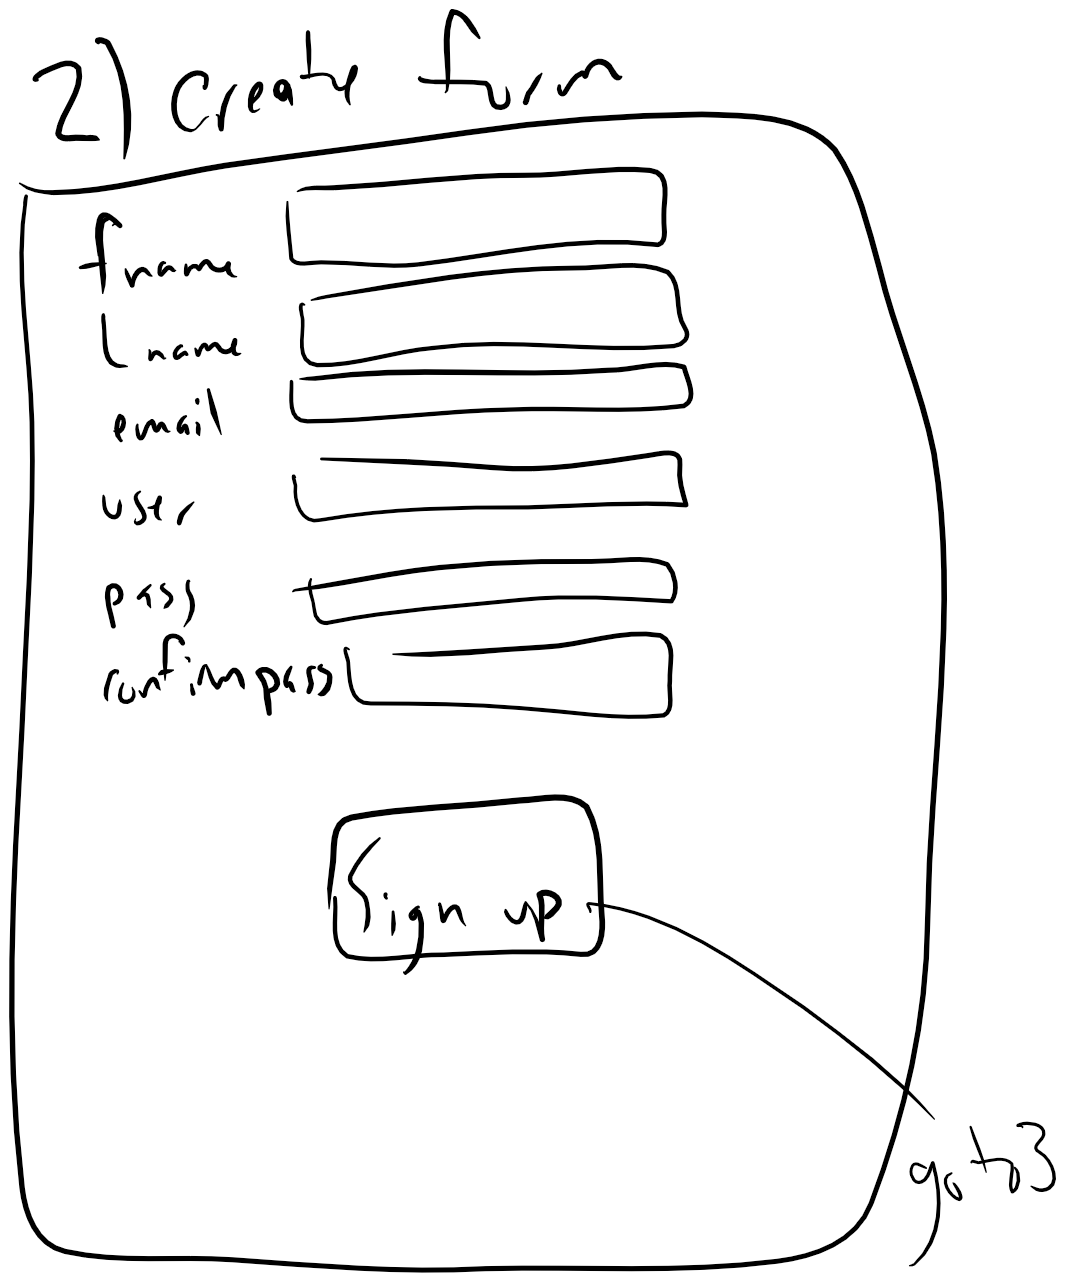 2) Create form
fname
lname
email
user
pass
confirmpass
Sign up
go to 3